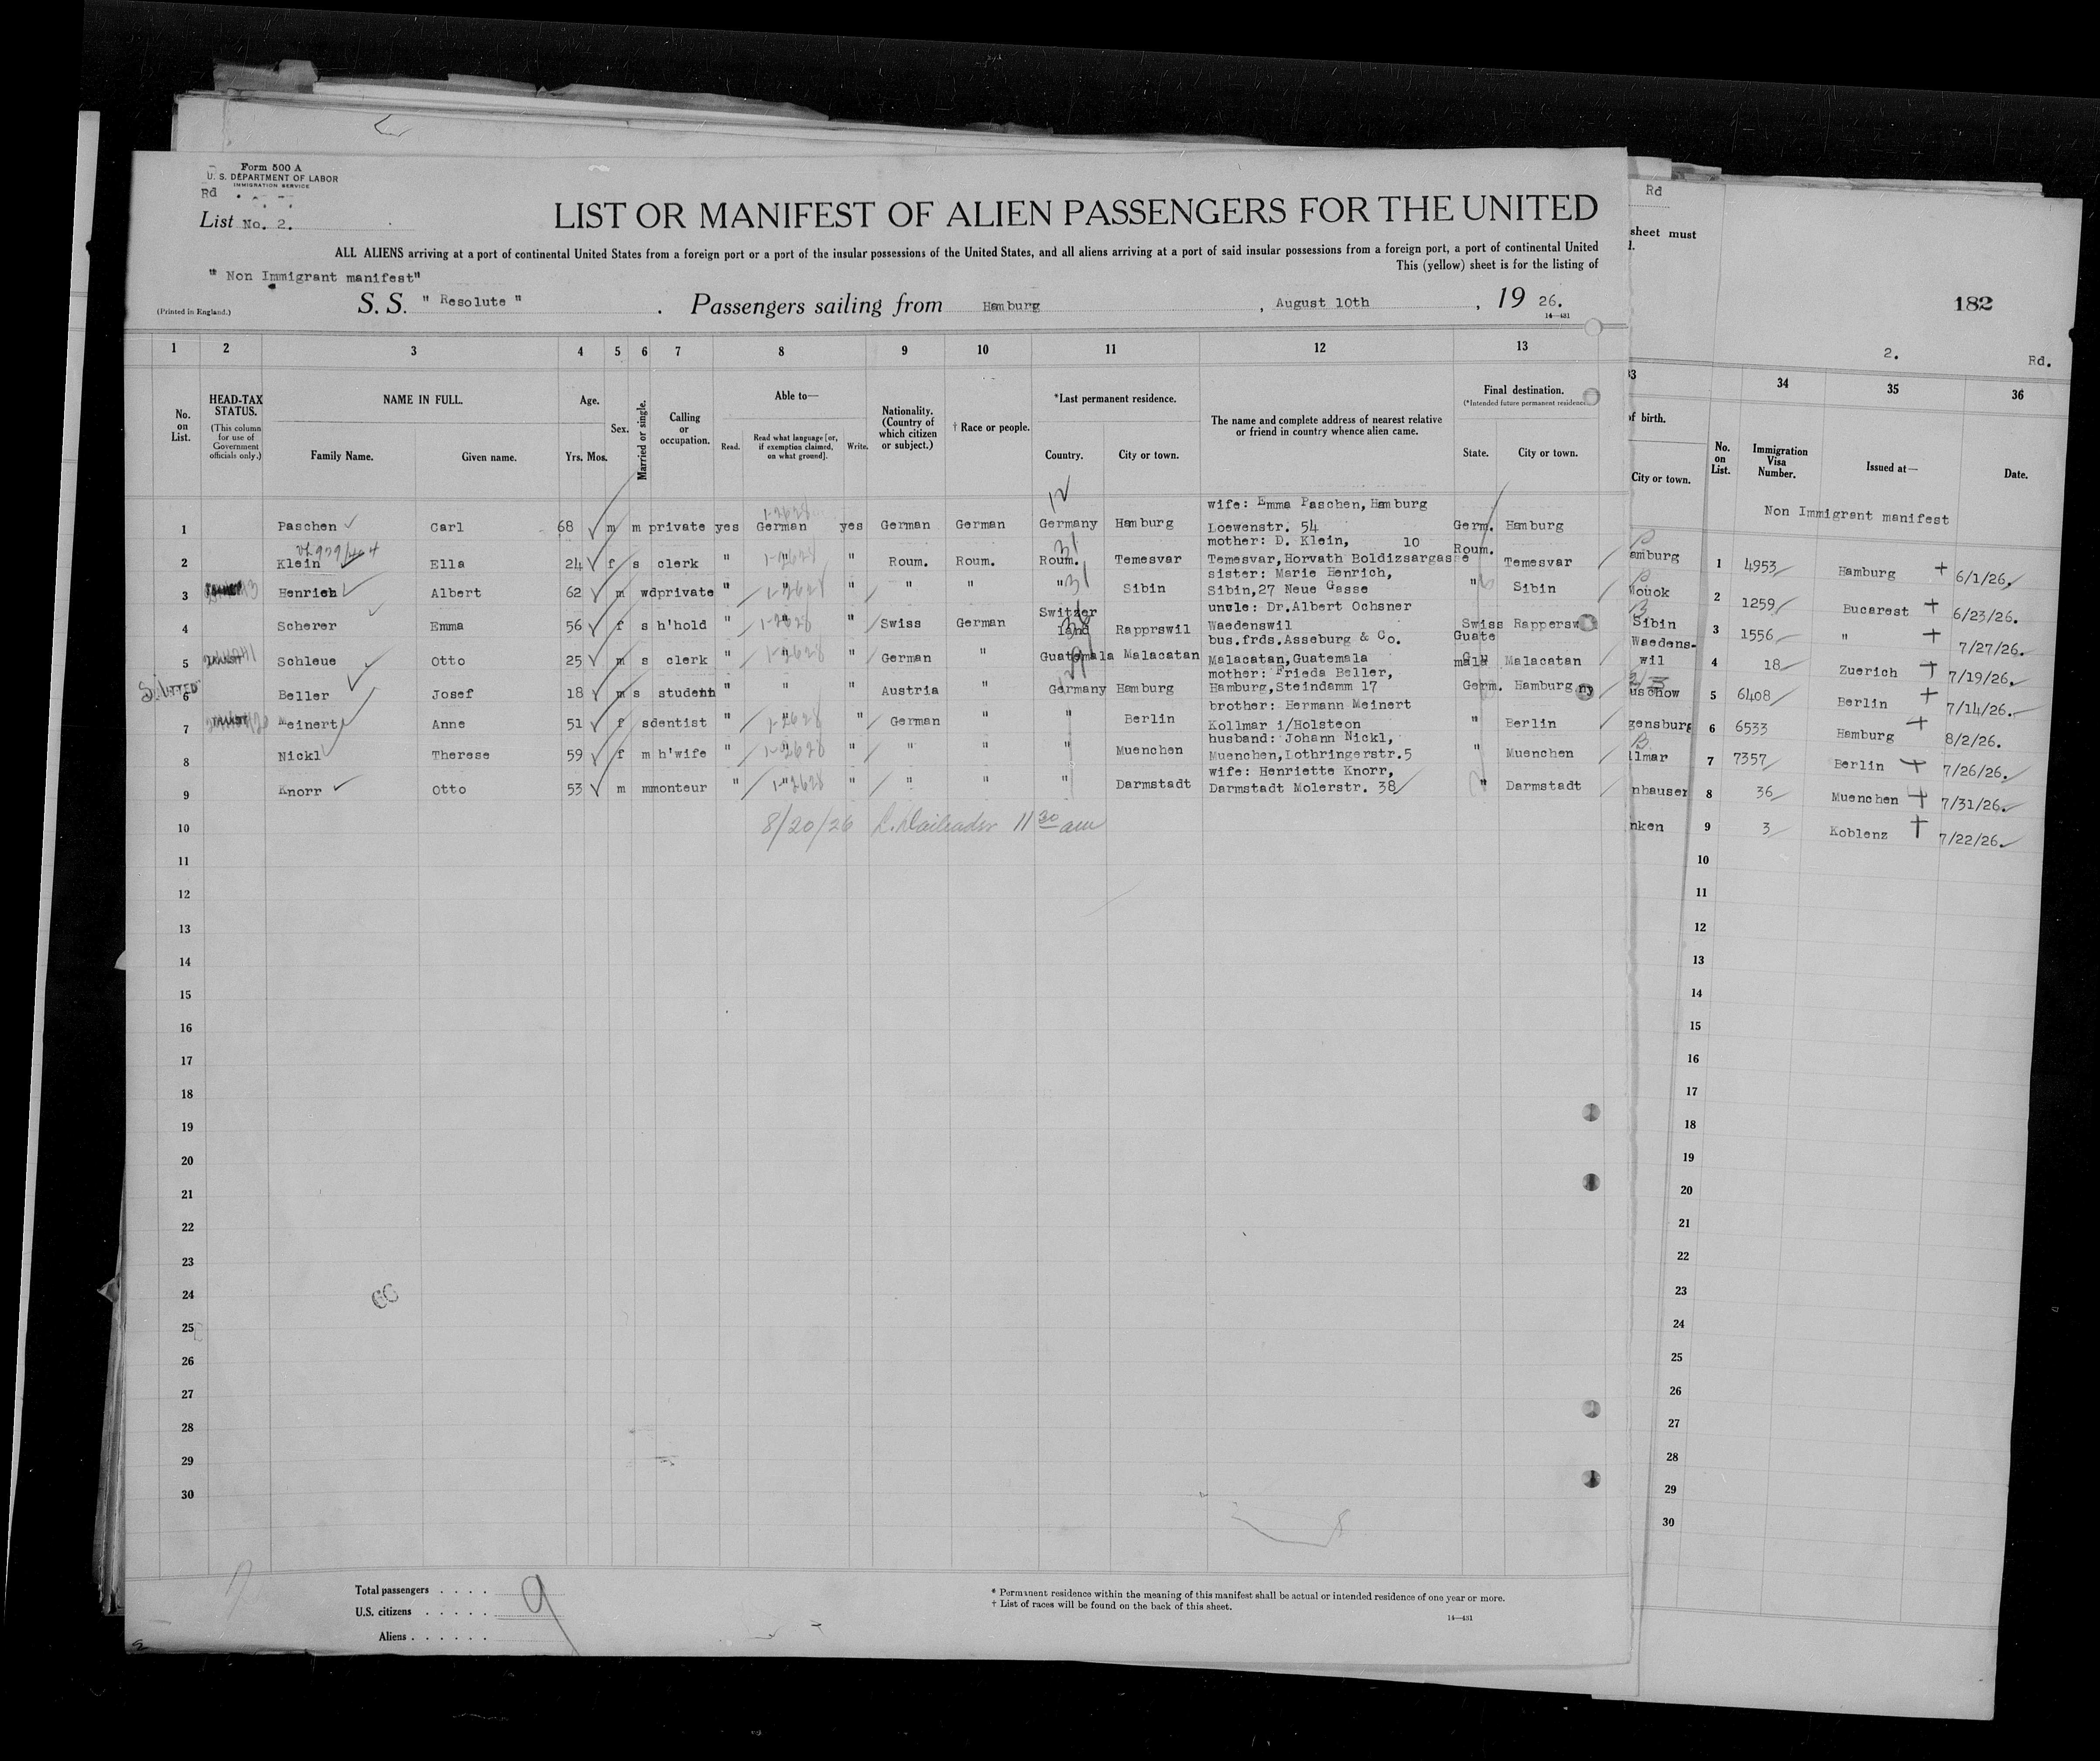 Form 500 A
U. S. DEPARTMENT OF LABOR
IMMIGRATION SERVICE
Rd
List No. 2.
LIST OR MANIFEST OF ALIEN PASSENGERS FOR THE UNITED
ALL ALIENS arriving at a port of continental United States from a foreign port or a port of the insular possessions of the United States, and all aliens arriving at a port of said insular possessions from a foreign port, a port of continental United
This (yellow) sheet is for the listing of
" Non Immigrant manifest"
(Printed in England.)
S. S. " Resolute " . Passengers sailing from Hamburg , August 10th , 19 26.
14—431
1 2 3 4 5 6 7 8 9 10 11 12 13
No. on List.
HEAD-TAX STATUS.
(This column for use of Government officials only.)
NAME IN FULL.
Family Name. Given name.
Age.
Yrs. Mos.
Sex.
Married or single.
Calling or occupation.
Able to—
Read. Read what language [or, if exemption claimed, on what ground]. Write.
Nationality. (Country of which citizen or subject.)
† Race or people.
*Last permanent residence.
Country. City or town.
The name and complete address of nearest relative or friend in country whence alien came.
Final destination.
(*Intended future permanent residence
State. City or town.
12
1-2628
wife: Emma Paschen, Hamburg
1 Paschen Carl 68 m m private yes German yes German German Germany Hamburg Loewenstr. 54 Germ. Hamburg
31
mother: D. Klein, 10
2 Klein Ella 24 f s clerk " " 1-2628 " Roum. Roum. Roum. Temesvar Temesvar,Horvath Boldizsargasse Roum. Temesvar
sister: Marie Henrich,
3 TRANSIT Henrich Albert 62 m wd private " " 1-2628 " " " " 31 Sibin Sibin,27 Neue Gasse " Sibin
unvle: Dr.Albert Ochsner
4 Scherer Emma 56 f s h'hold " " 1-2628 " Swiss German Switzer land Rapprswil Waedenswil Swiss Rappersw
bus.frds.Asseburg & Co.
5 TRANSIT Schleue Otto 25 m s clerk " " 1-2628 " German " Guatemala Malacatan Malacatan,Guatemala Guate mala Malacatan
mother: Frieda Beller,
6 Beller Josef 18 m s student " " " Austria " Germany Hamburg Hamburg,Steindamm 17 Germ. Hamburg
brother: Hermann Meinert
7 TRANSIT Meinert Anne 51 f s dentist " " 1-2628 " German " " Berlin Kollmar i/Holsteon " Berlin
husband: Johann Nickl,
8 Nickl Therese 59 f m h'wife " " 1-2628 " " " " Muenchen Muenchen,Lothringerstr.5 " Muenchen
wife: Henriette Knorr,
9 Knorr Otto 53 m m monteur " " 1-2628 " " " " Darmstadt Darmstadt Molerstr. 38 " Darmstadt
10 8/20/26 11 30 am
11
12
13
14
15
16
17
18
19
20
21
22
23
24
25
26
27
28
29
30
Total passengers . . . . 9
U.S. citizens . . . . .
Aliens . . . . . .
* Permanent residence within the meaning of this manifest shall be actual or intended residence of one year or more.
† List of races will be found on the back of this sheet.
14—431
Rd
sheet must
182
2. Rd.
33 34 35 36
of birth.
City or town.
No. on List.
Immigration Visa Number.
Issued at—
Date.
Non Immigrant manifest
amburg 1 4953 Hamburg 6/1/26.
Wouok 2 1259 Bucarest 6/23/26.
Sibin 3 1556 " 7/27/26.
Waedens- wil 4 18 Zuerich 7/19/26.
uschow 5 6408 Berlin 7/14/26.
gensburg 6 6533 Hamburg 8/2/26.
llmar 7 7357 Berlin 7/26/26.
nhauser 8 36 Muenchen 7/31/26.
nken 9 3 Koblenz 7/22/26.
10
11
12
13
14
15
16
17
18
19
20
21
22
23
24
25
26
27
28
29
30